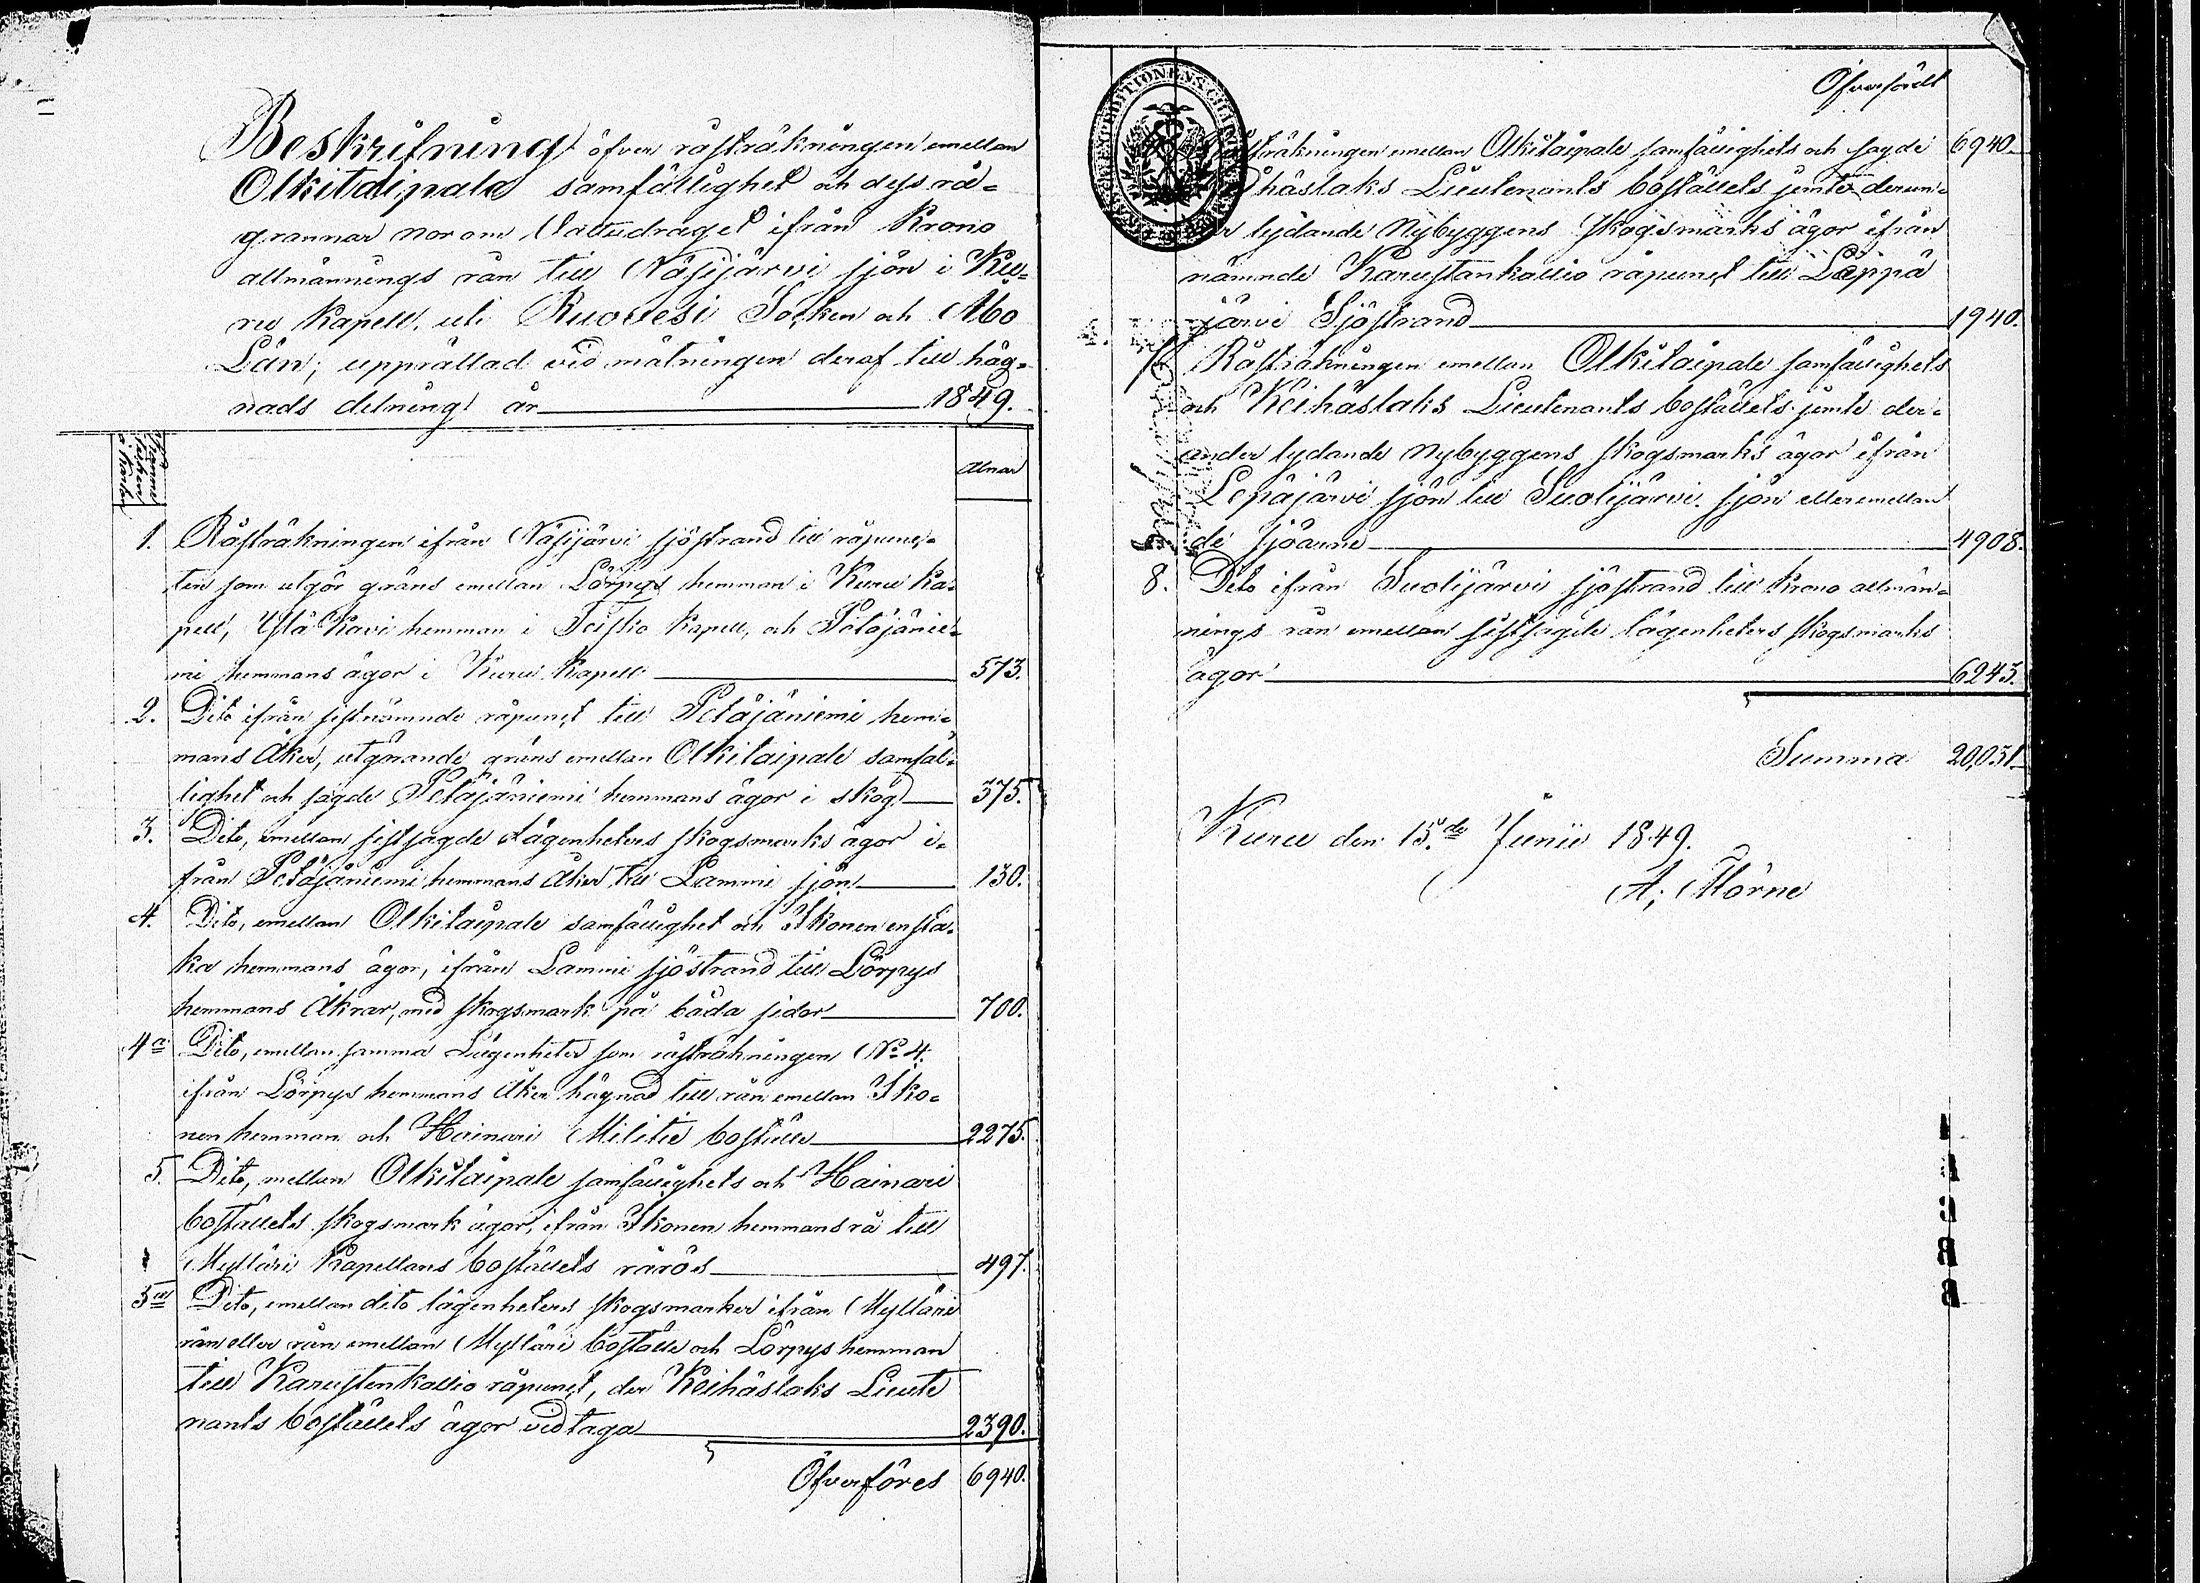 Beskrifning öfver råsträkningen emellan
Olkitaipale samfällighet och dess rå-
grannar norom Vattudraget ifrån Krono
allmännings rån till Näsijärvi sjön i Ku-
ru Kapell, uti Ruovesi Socken och Åbo
Län; upprättad vid mätningen deraf till häg-
nads delning år 1849.
Alnar
1. Råsträkningen ifrån Näsijärvi sjöstrand till råpunc-
ten som utgör gräns emellan Lörpys hemman i Kuru Ka-
pell, Ylä Kavi hemman i Teisko Kapell, och Petäjänie-
mi hemmans ägor i Kuru Kapell 573.
2. Dito ifrån sistnämnde råpunct till Petäjäniemi hem-
mans Åker, utgörande gräns emellan Olkitaipale samfäl-
lighet och sagde Petäjäniemi hemmans ägor i skog 375.
3. Dito, emellan sistsagde Lägenheters skogsmarks ägor i-
från Petäjäniemi hemmans Åker till Lammi sjön 130.
4. Dito, emellan Olkitaipale samfällighet och Ikonen ensta-
ka hemmans ägor, ifrån Lammi sjöstrand till Lörpys
hemmans Åkrar, med skogsmark på båda sidor 700.
4a Dito, emellan samma Lägenheter som råsträkningen No 4.
ifrån Lörpys hemmans Åker hägnad till rån emellan Iko-
nen hemman och Hainari Militie boställe 2275.
5. Dito, mellan Olkitaipale samfällighets och Hainari
boställets skogsmark ägor, ifrån Ikonen hemmans rå till
Mylläri Kapellans boställets rårös 497.
5a Dito, emellan dito lägenheters skogsmarker ifrån Mylläri
rån eller rån emellan Mylläri boställe och Lörpys hemman
till Karustenkallio råpunct, der Keihäslaks Lieute
nants boställets ägor vidtaga 2390.
Öfverföres 6940.
Öfverfördt 6940.
Råsträkningen emellan Olkitaipale samfällighets och sagde
Keihäslaks Lieutenants boställets jemte derun-
der lydande Nybyggens skogsmarks ägor ifrån
nämnde Karustankallio råpunct till Leppä
järvi Sjöstrand 1940.
Råsträkningen emellan Olkitaipale samfällighets
och Keihäslaks Lieutenants boställets jemte der-
under lydande Nybyggens skogsmarks ägor ifrån
Lepäjärvi sjön till Suolijärvi sjön eller emellan
de sjöarne 4908.
8. Dito ifrån Suolijärvi sjöstrand till Krono allmän-
nings rån emellan sistsagde lägenheters skogsmarks
ägor 6243.
Summa 20,031
Kuru den 15.de Junii 1849.
A; Mörne